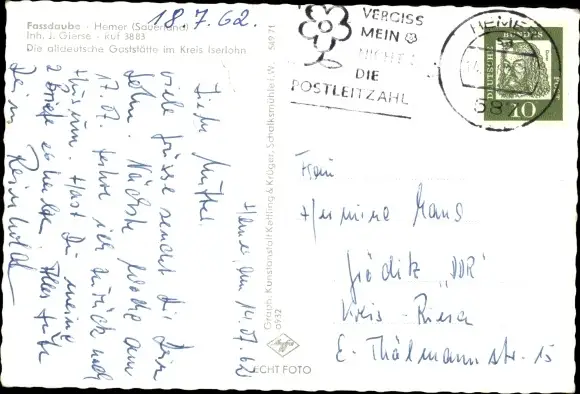 Fassdaube · Hemer (Sauerland)
Inh. J. Gierse · Ruf 3883
Die altdeutsche Gaststätte im Kreis Iserlohn
18.7.62.
VERGISS
MEIN
NICHT
DIE
POSTLEITZAHL
HEMER
587
DEUTSCHE BUNDESPOST
10
Hemer, den 14.07.62
Liebe Mutter.
viele Grüsse sendet Dir Dein
Sohn. Nächste Woche am
17.07. fahre ich zurück nach
Husum. Hast Du meine
2 Briefe erhalten. Alles Gute
Dein Reinhold
Graph. Kunstanstalt Kettling & Krüger, Schalksmühle i.W. 5491
0932
Agfa
ECHT FOTO
Frau
Hermine Gans
Gröditz „DDR"
Kreis-Riesa
E.-Thälmannstr. 15